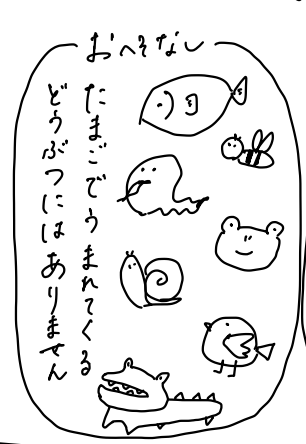 おへそなし
たまごでうまれてくる
どうぶつにはありません